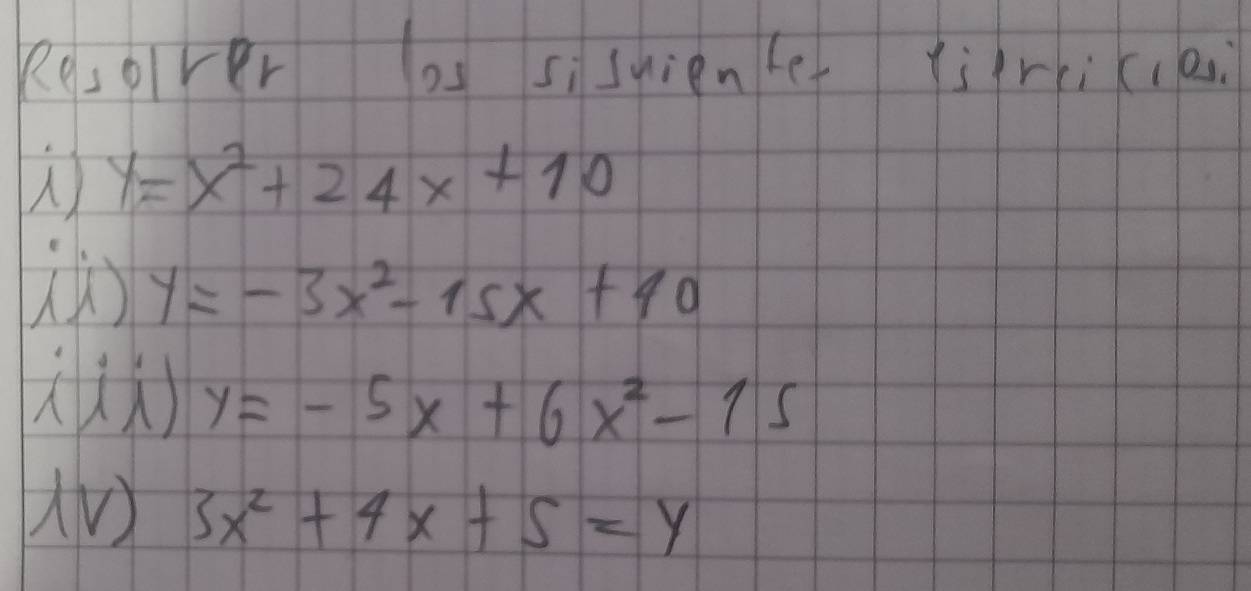 Resolver los siguientes ejercicios:
i) y = x² + 24x + 10
ii) y = -3x² - 15x + 10
iii) y = -5x + 6x² - 15
iv) 3x² + 4x + 5 = y